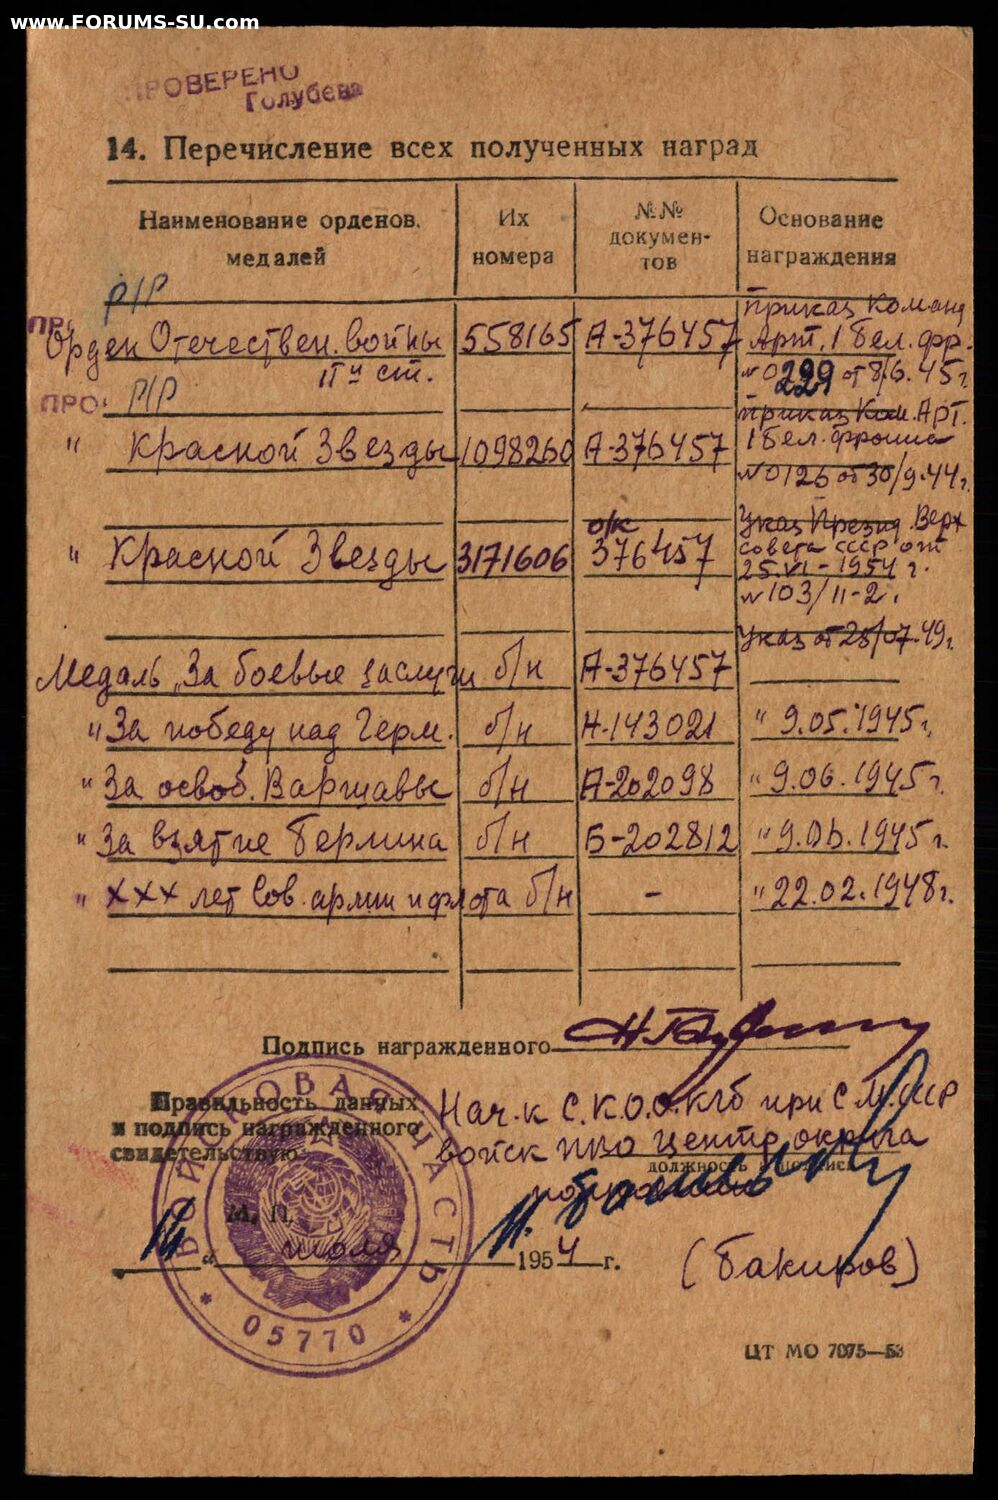 www.FORUMS-SU.com
ПРОВЕРЕНО
Голубева
14. Перечисление всех полученных наград
Наименование орденов, медалей
Их номера
№№ документов
Основание награждения
Р/Р
ПРО
Орден Отечествен. войны 558165 А-376457
IIй ст.
Приказ Команд
Арт. 1 Бел. фр.
№ 0229 от 8/6.45 г.
ПРО
Р/Р
" Красной Звезды 1098260 А-376457
Приказ Ком. Арт.
1 Бел. фронта
№ 0126 от 30/9.44 г.
" Красной Звезды 3171606 о/к 376457
Указ Презид. Верх
совета СССР от
25.VI-1954 г.
№ 103/II-2.
Медаль „За боевые заслуги б/н А-376457
Указ от 25/07.49 г.
" За победу над Герм. б/н Н-143021 " 9.05.1945 г.
" За освоб. Варшавы б/н А-202098 " 9.06.1945 г.
" За взятие Берлина б/н Б-202812 " 9.06.1945 г.
" ХХХ лет Сов. армии и флота б/н - " 22.02.1948 г.
Подпись награжденного
Правильность данных
и подпись награжденного
свидетельствую:
Нач-к С.К.О.О. КГБ при СМ СССР
войск ПВО Центр. округа
должность и подпись
М. П.
14 „ июля 1954 г.
(Бакиров)
ВОЙСКОВАЯ ЧАСТЬ
* 05770 *
ЦТ МО 7075—53